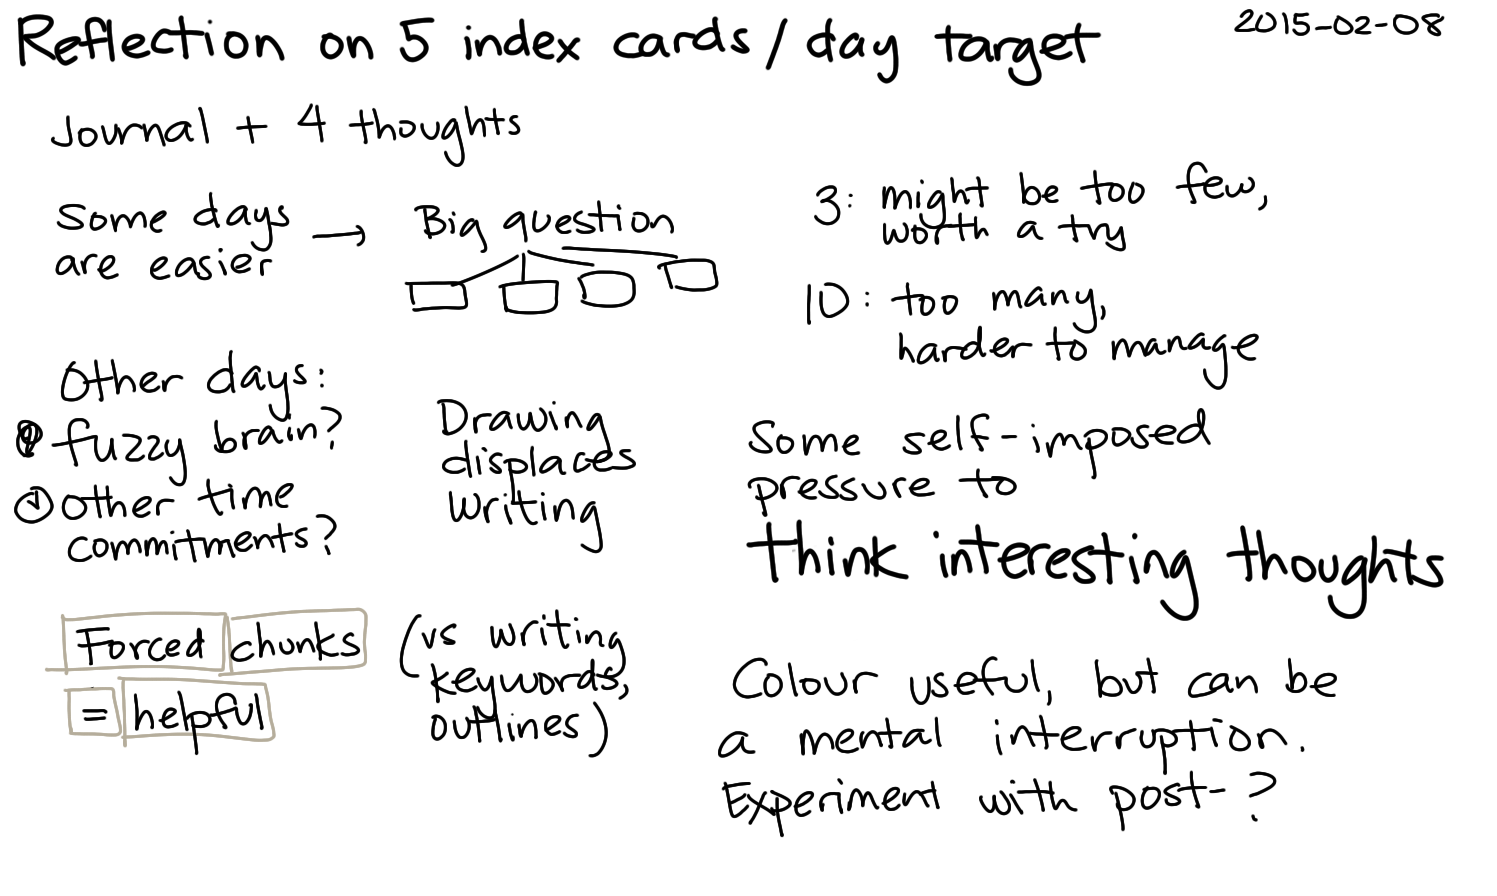 Reflection on 5 index cards / day target
2015-02-08
Journal + 4 thoughts
Some days
are easier
→ Big question
Other days:
fuzzy brain?
other time
commitments?
Drawing
displaces
writing
Forced chunks
= helpful
(vs writing
keywords,
outlines)
3: might be too few,
worth a try
10: too many,
harder to manage
Some self-imposed
pressure to
think interesting thoughts
Colour useful, but can be
a mental interruption.
Experiment with post- ?